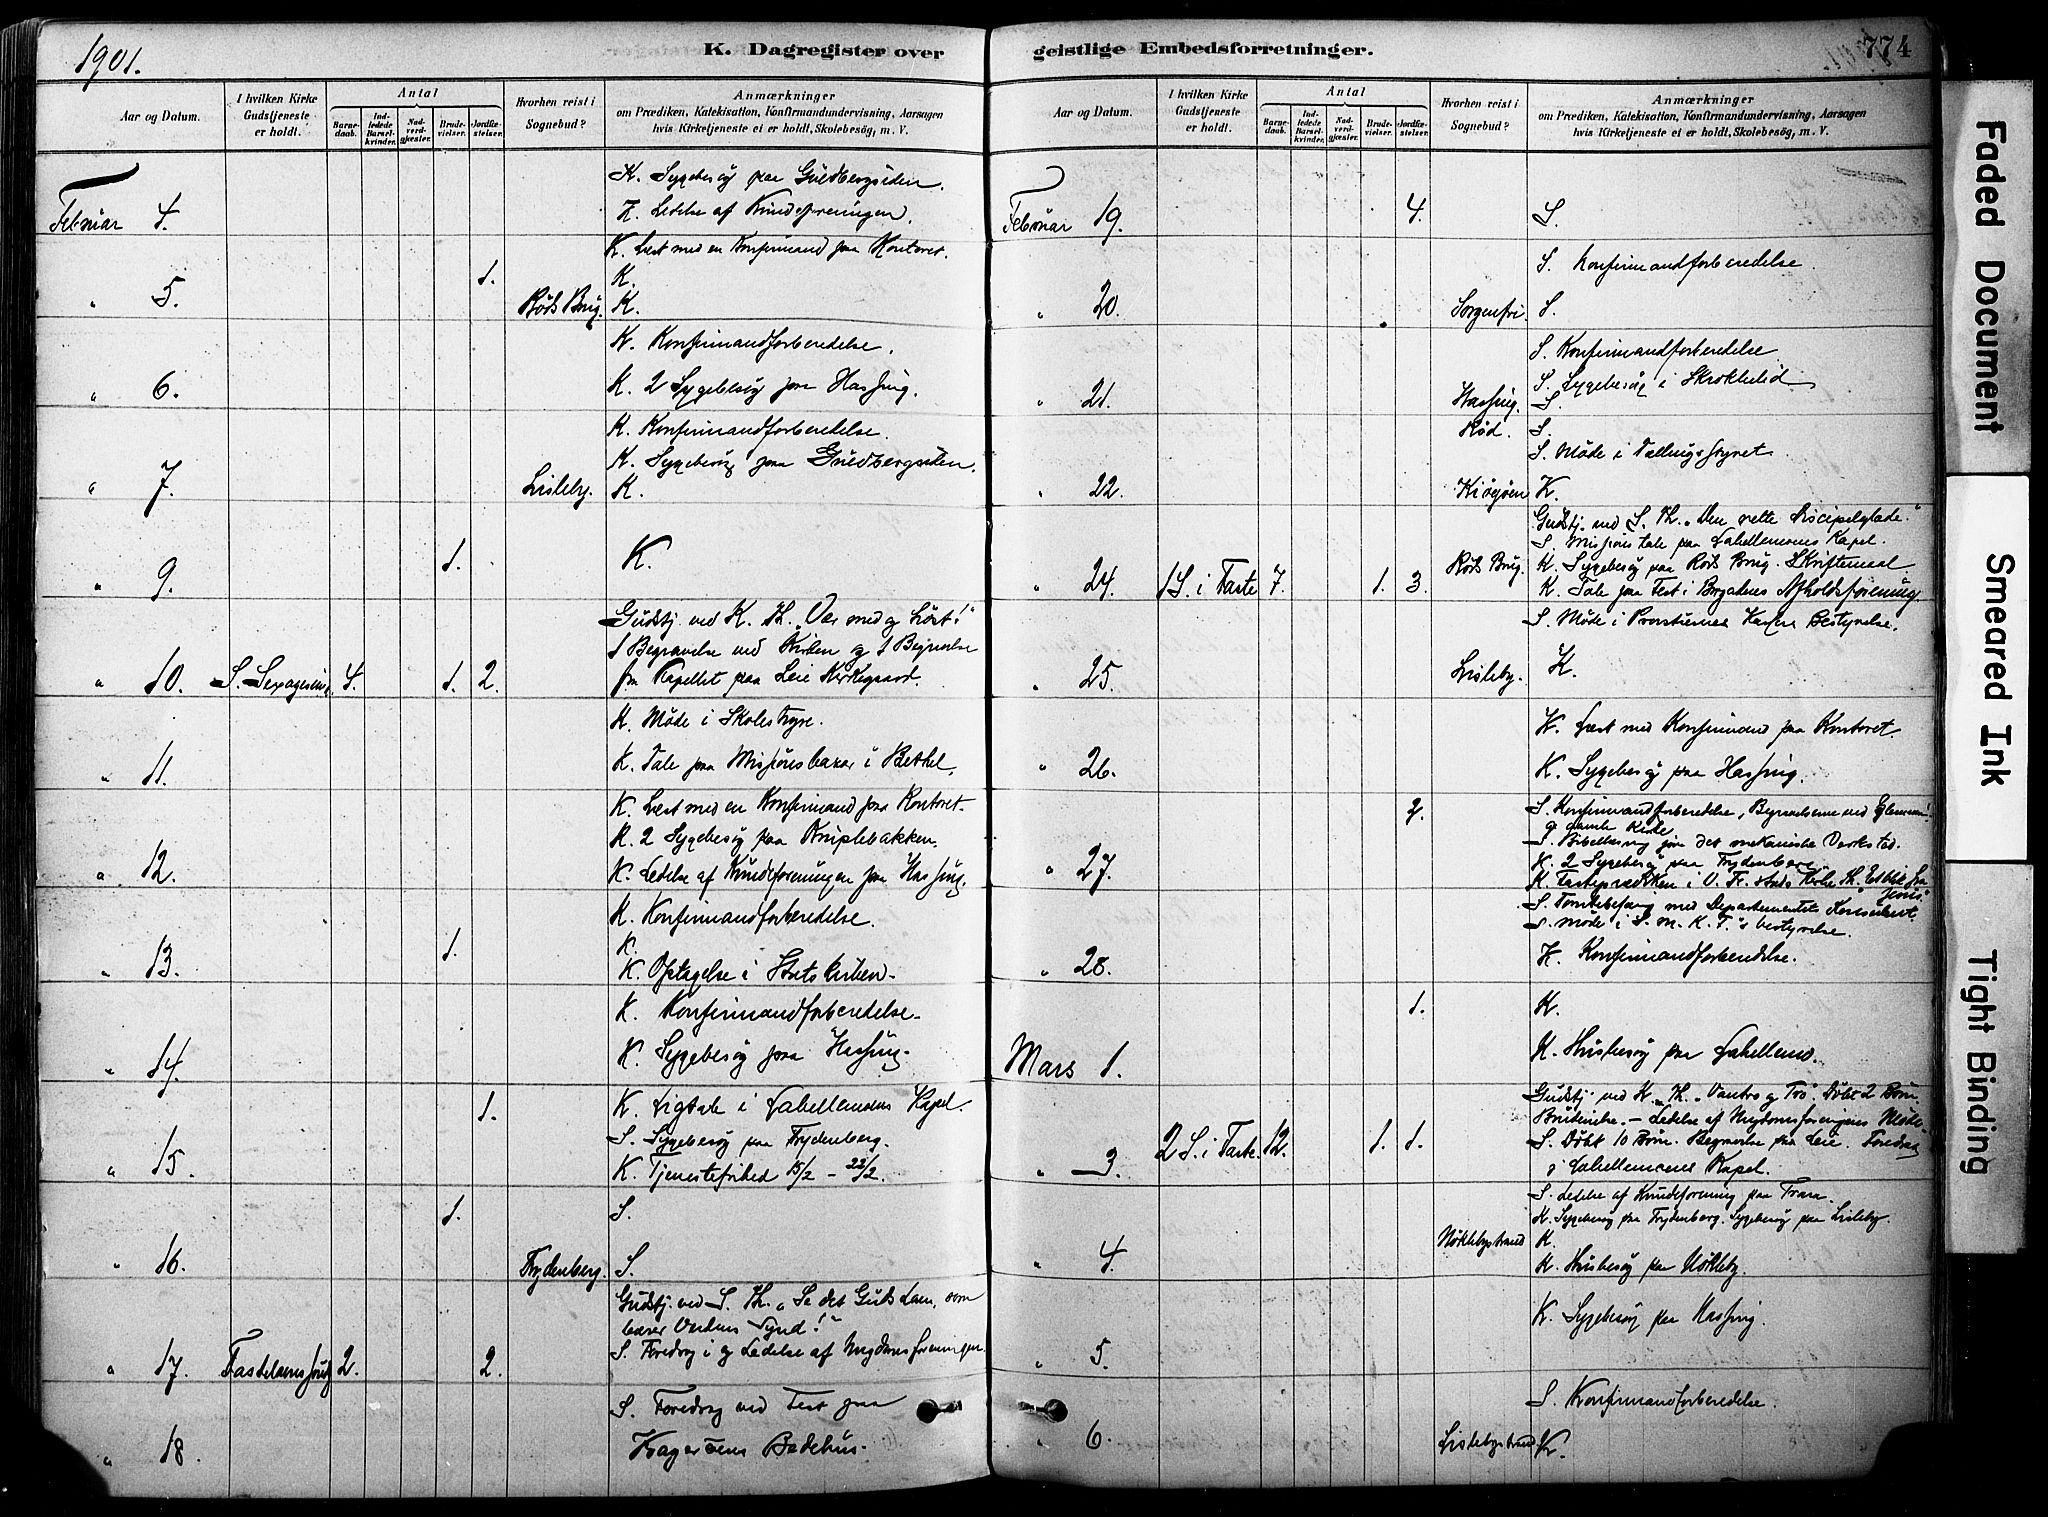 1901.
K. Dagregister over
Aar og Datum.
I hvilken Kirke Gudstjeneste er holdt.
Antal
Barnedaab.
Indledede Barselkvinder.
Nadverdgjæster.
Brudevielser.
Jordfæstelser.
Hvorhen reist i Sognebud?
Anmærkninger
om Prædiken, Katekisation, Konfirmandundervisning, Aarsagen
hvis Kirketjeneste ei er holdt, Skolebesøg, m. V.
K. Sygebesøg paa Guldbergsiden.
Februar 4. K. Ledelse af Kvindeforeningen.
K. Læst med en Konfirmand paa Kontoret.
1. K.
" 5. Røds Brug. K.
K. Konfirmandforberedelse.
" 6. K. 2 Sygebesøg paa Hassing.
K. Konfirmandforberedelse.
K. Sygebesøg paa Guldbergsiden.
" 7. Lisleby. K.
" 9. 1. K.
Gudstj. ved K. Th. "Vær med og Høst!"
1 Begravelse ved Kirken og 1 Begravelse
" 10. S. Sexagesima 4. 1. 2. fra Kapellet paa Leie Kirkegaard.
K. Møde i Skolestyre.
" 11. K. Tale paa Missionsbazar i Bethel.
K. Læst med en Konfirmand paa Kontoret.
K. 2 Sygebesøg paa Kniplebakken.
" 12. K. Ledelse af Kvindeforeningen paa Hassing.
K. Konfirmandforberedelse.
1. K.
" 13. K. Optagelse i Statskirken.
K. Konfirmandforberedelse.
" 14. K. Sygebesøg paa Hassing.
1. K. Ligtale i Labellemoens Kapel.
S. Sygebesøg paa Frydenberg.
" 15. K. Tjenestefrihed 15/2 - 22/2.
1. S.
" 16. Frydenberg. S.
Gudstj. ved S. Th. "Se det Guds Lam, som
bærer Verdens Synd!"
" 17. Fastelavnssønd. 2. 2. S. Foredrag i og Ledelse af Ungdomsforeningen.
S. Foredrag ved Fest paa
" 18. Kragerøens Badehus.
geistlige Embedsforretninger.
774
Aar og Datum.
I hvilken Kirke Gudstjeneste er holdt.
Antal
Barnedaab.
Indledede Barselkvinder.
Nadverdgjæster.
Brudevielser.
Jordfæstelser.
Hvorhen reist i Sognebud?
Anmærkninger
om Prædiken, Katekisation, Konfirmandundervisning, Aarsagen
hvis Kirketjeneste ei er holdt, Skolebesøg, m. V.
Februar 19. 4. S.
S. Konfirmandforberedelse.
" 20. Sorgenfri. S.
S. Konfirmandforberedelse
S. Sygebesøg i Skrokkelid
" 21. Hassing. S.
Rød. S.
S. Møde i Tællingsstyret
" 22. Kiøgøen K.
Gudstj. ved S. Th. "Den rette Discipelglæde."
S. Missions tale paa Labellemoens Kapel.
Røds Brug. K. Sygebesøg paa Røds Brug. Skriftemaal
" 24. 1 S. i Faste 7. 1. 3. K. Tale paa Fest i Brygadens Afholdsforening.
S. Møde i Provstiernes Kasses Bestyrelse.
" 25. Lisleby. K.
K. Læst med Konfirmand paa Kontoret.
" 26. K. Sygebesøg paa Hassing.
2. S. Konfirmandforberedelse, Begravelserne ved Glemmen
gamle Kirke
S. Bibellæsning for det mekaniske Verksted.
" 27. K. 2 Sygebesøg paa Frydenberg.
K. Fasteprædiken i V. Fr.stads Kirke Th. "Et Blik fra Jesus"
S. Tomtebefaring med Departementets Konsulent.
S. Møde i S. M. K. F.'s bestyrelse.
" 28. K. Konfirmandforberedelse.
1. K.
Mars 1. K. Husbesøg paa Labellemo.
Gudstj. ved K. Th. "Vantro og Tro". Døbt 2 Børn.
Brudevielse. - Ledelse af Ungdomsforeningens Møde
" 3. 2 S. i Faste. 12. 1. 1. S. Døbt 10 Børn. Begravelse fra Leie. Foredrag
i Labellemoens Kapel.
S. Ledelse af Kvindeforening paa Trara.
K. Sygebesøg paa Frydenberg. Sygebesøg paa Lisleby.
Nøklebystrand K.
" 4. K. Husbesøg paa Nøkleby.
K. Sygebesøg paa Hassing.
" 5.
S. Konfirmandforberedelse.
" 6. Lislebystrand K.
Faded Document
Smeared Ink
Tight Binding